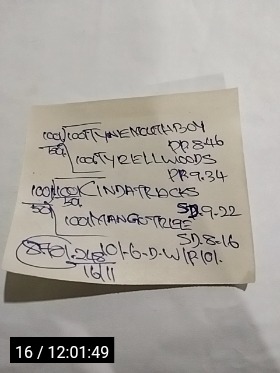 100/100TYNEMOUTHBOY
50/ P.R.8.46
100/TYRELLWOODS
P.R.9.34
100/100KINDATRACKS
50/ 50/ S.D.9.22
100/MANGOTR19E
S.D.8.16
101-6-D-W/P.101.
16/11
16 / 12:01:49